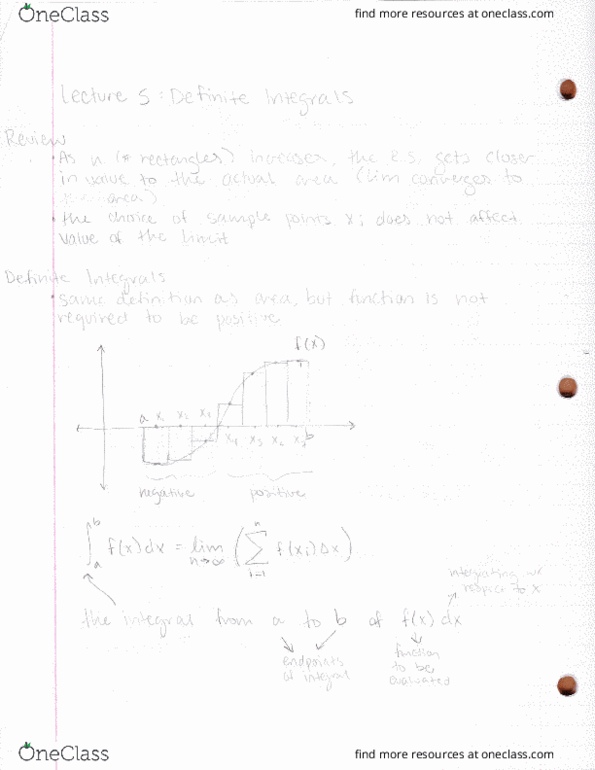 OneClass
find more resources at oneclass.com
Lecture 5: Definite Integrals
Review
• As n (# rectangles) increases, the R.S. gets closer
in value to the actual area (lim converges to
area)
• the choice of sample points xi does not affect
value of the limit
Definite Integrals
• same definition as area, but function is not
required to be positive
f(x)
a x₁ x₂ x₃
b
negative positive
∫ₐᵇ f(x)dx = lim n→∞ (∑ i=1 n f(xi)Δx)
integrating w/
respect to x
the integral from a to b of f(x) dx
endpoints
of integral
function
to be
evaluated
OneClass
find more resources at oneclass.com